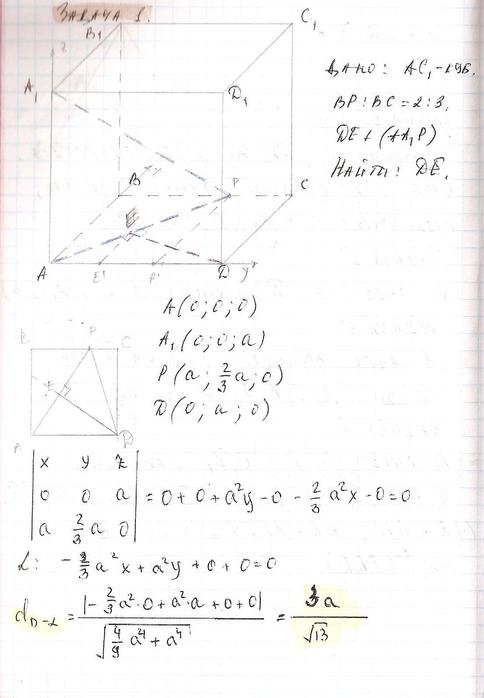 Задача 1.
B₁
C₁
z
A₁
D₁
B
P
C
E
A
E'
P'
D
y
Дано: AC₁ - куб.
BP : BC = 2 : 3.
DE ⊥ (AA₁P).
Найти: DE.
A(0; 0; 0)
A₁(0; 0; a)
P(a; 2/3 a; 0)
D(0; a; 0)
P
C
D
| x y z |
| 0 0 a | = 0 + 0 + a²y - 0 - 2/3 a²x - 0 = 0
| a 2/3 a 0 |
α: - 2/3 a²x + a²y + 0 + 0 = 0
d_{D-α} = |- 2/3 a²·0 + a²·a + 0 + 0| / √(4/9 a⁴ + a⁴) = 3a / √13